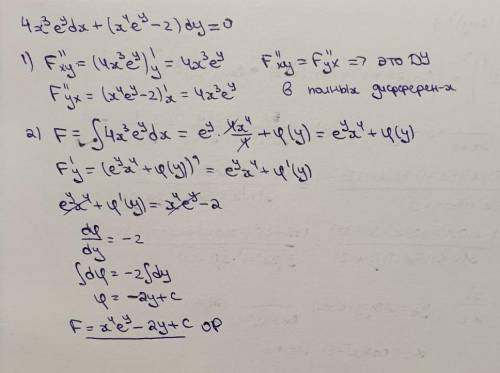 4x³eʸdx + (x⁴eʸ-2)dy = 0
1) F''xy = (4x³eʸ)'y = 4x³eʸ F''xy = F''yx => это ДУ
F''yx = (x⁴eʸ-2)'x = 4x³eʸ в полных дифферен-х
2) F = ∫4x³eʸdx = eʸ · 4x⁴/4 + φ(y) = eʸx⁴ + φ(y)
F'y = (eʸx⁴ + φ(y))' = eʸx⁴ + φ'(y)
eʸx⁴ + φ'(y) = x⁴eʸ - 2
dφ/dy = -2
∫dφ = -2∫dy
φ = -2y + c
F = x⁴eʸ - 2y + c ОР